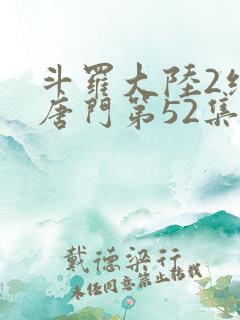 斗羅大陸2
唐門第52集
戴德梁行
未經同意禁止轉載